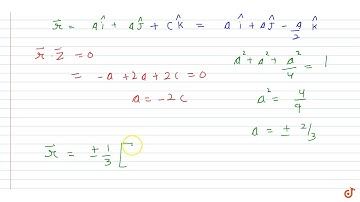 r⃗ = a î + a ĵ + c k̂ = a î + a ĵ - a/2 k̂
r⃗ · z⃗ = 0
= -a + 2a + 2c = 0
a = -2c
a² + a² + a²/4 = 1
a² = 4/9
a = ± 2/3
r⃗ = ± 1/3 [